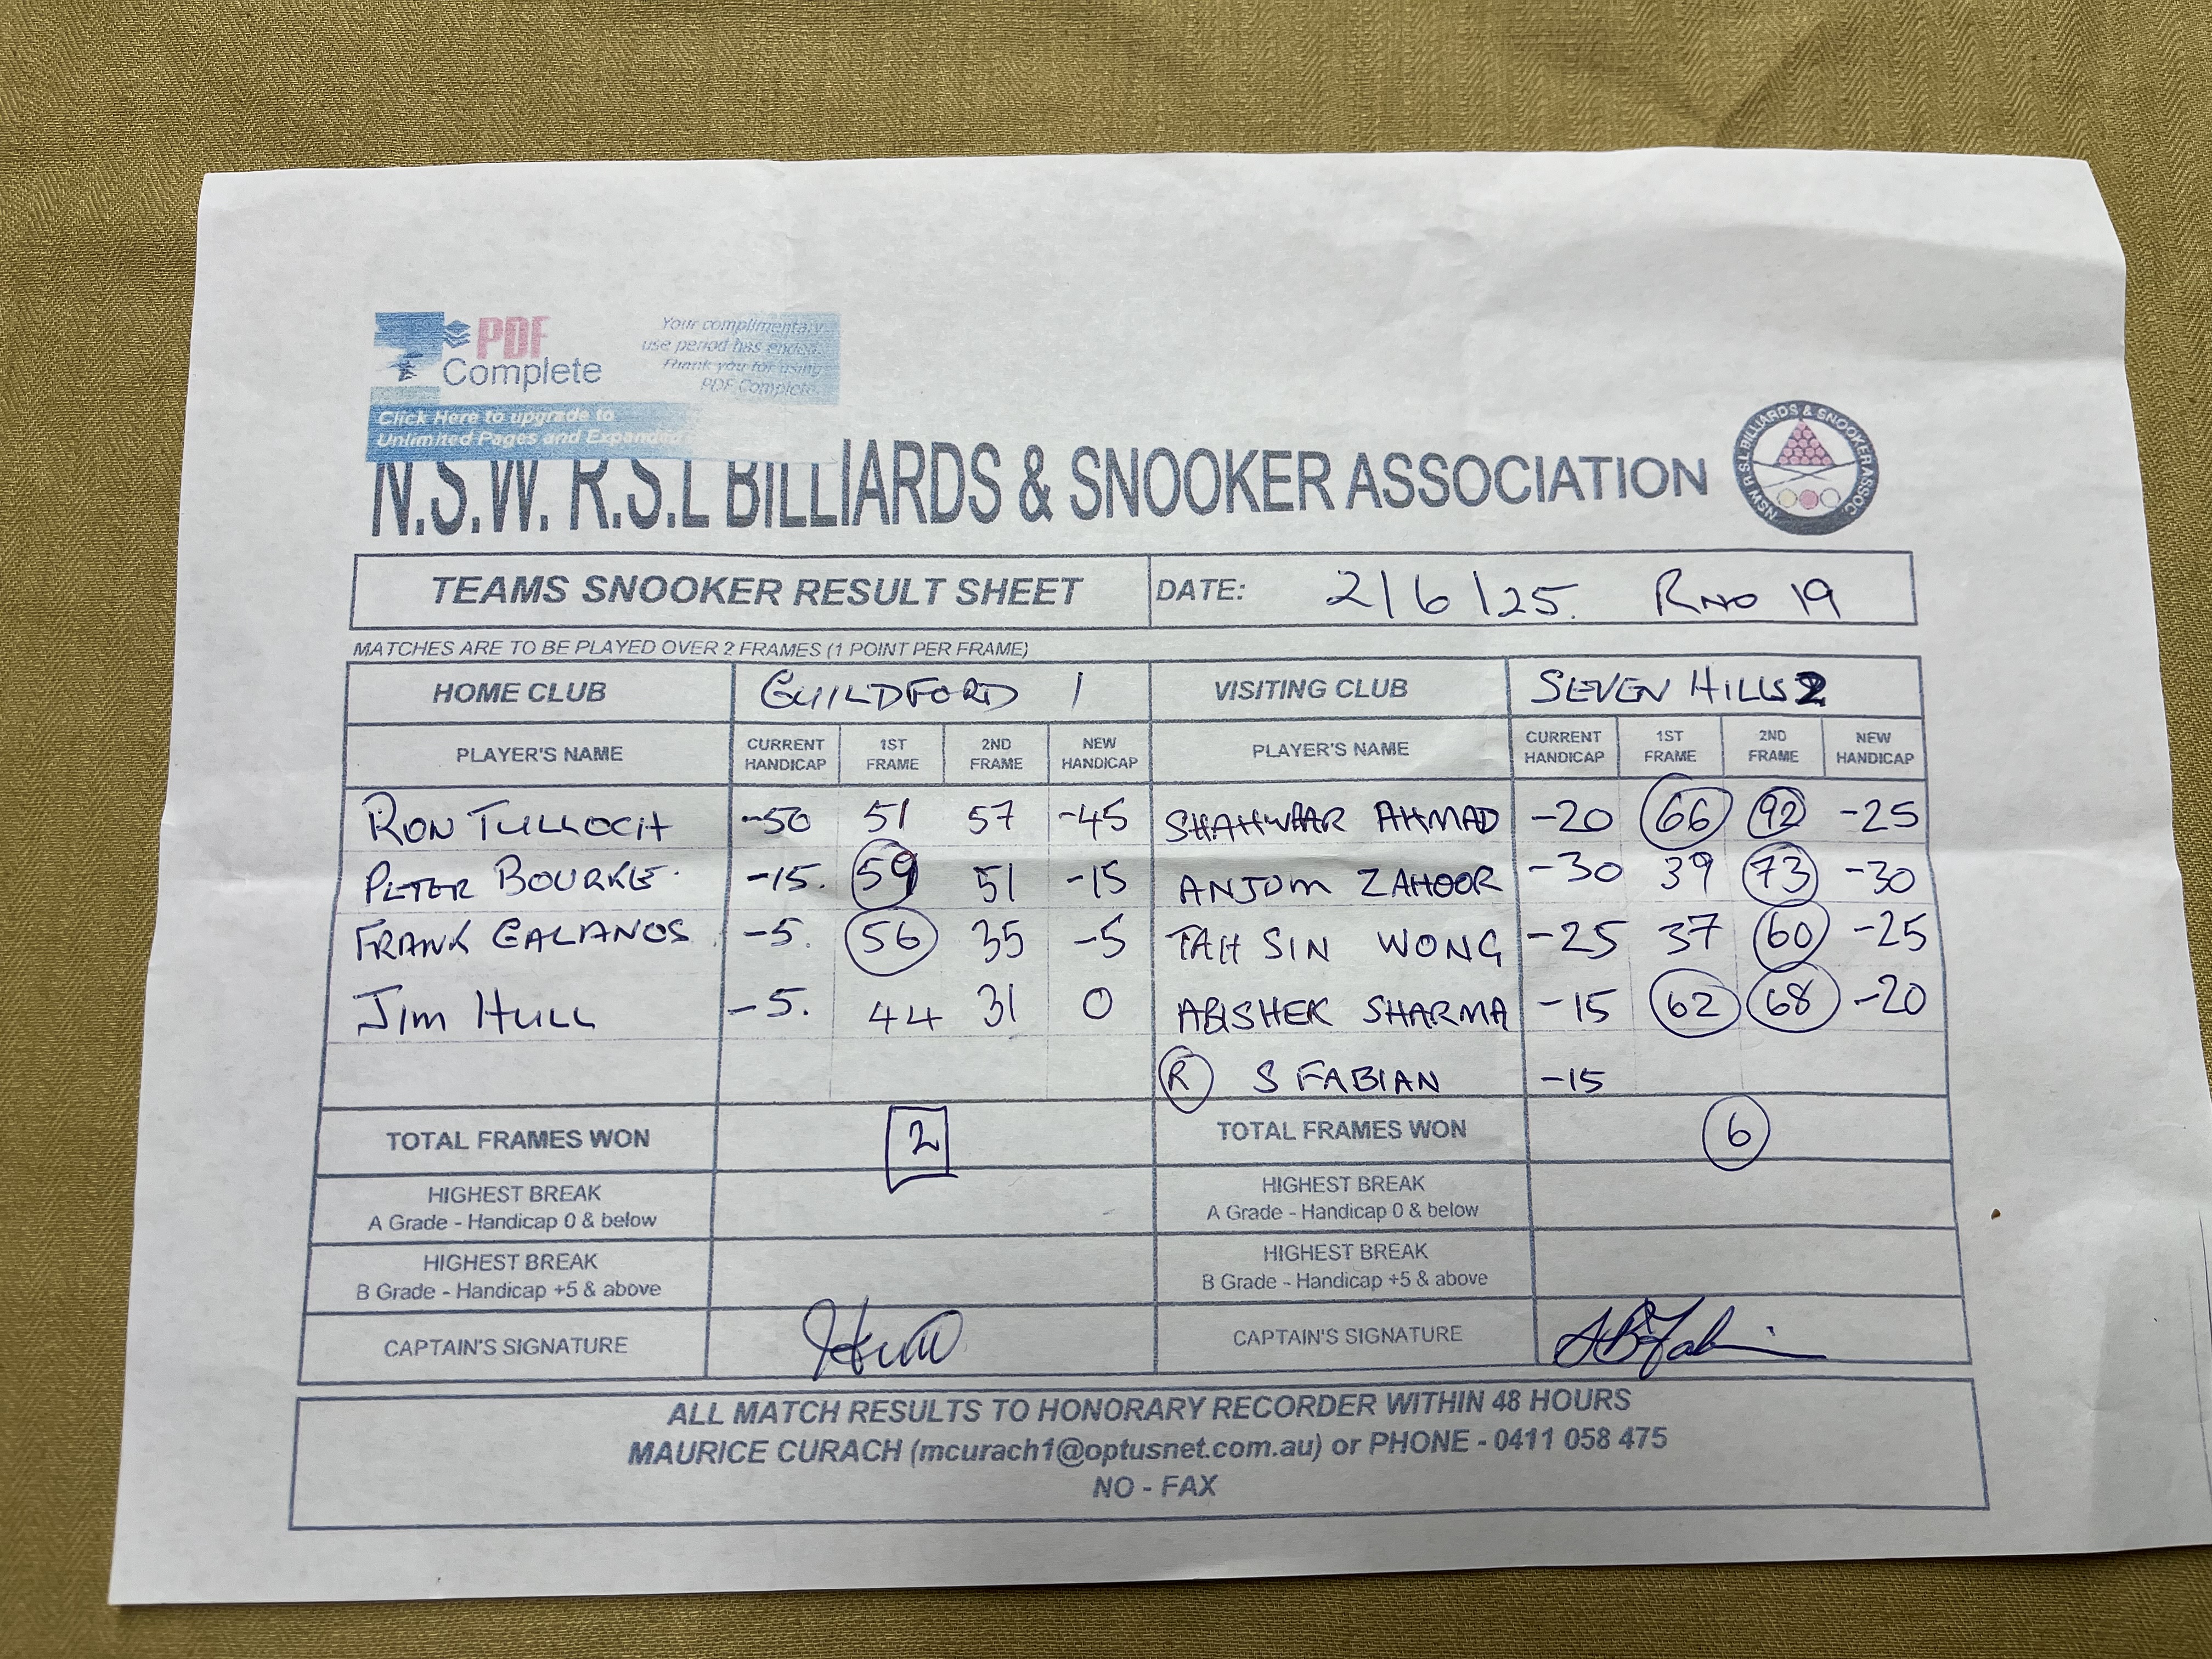 PDF
Complete
Your complimentary
use period has ended.
Thank you for using
PDF Complete.
Click Here to upgrade to
Unlimited Pages and Expanded
N.S.W. R.S.L BILLIARDS & SNOOKER ASSOCIATION
NSW R.S.L BILLIARDS & SNOOKER ASSOC.
TEAMS SNOOKER RESULT SHEET DATE: 2/6/25. RND 19
MATCHES ARE TO BE PLAYED OVER 2 FRAMES (1 POINT PER FRAME)
HOME CLUB GUILDFORD 1 VISITING CLUB SEVEN HILLS 2
PLAYER'S NAME CURRENT HANDICAP 1ST FRAME 2ND FRAME NEW HANDICAP PLAYER'S NAME CURRENT HANDICAP 1ST FRAME 2ND FRAME NEW HANDICAP
RON TULLOCH -50 51 57 -45 SHAHWAAR AHMAD -20 66 92 -25
PETER BOURKE. -15. 59 51 -15 ANJUM ZAHOOR -30 39 73 -30
FRANK GALANOS -5. 56 35 -5 TAH SIN WONG -25 37 60 -25
JIM HULL -5. 44 31 0 ABISHEK SHARMA -15 62 68 -20
R S FABIAN -15
TOTAL FRAMES WON 2 TOTAL FRAMES WON 6
HIGHEST BREAK HIGHEST BREAK
A Grade - Handicap 0 & below A Grade - Handicap 0 & below
HIGHEST BREAK HIGHEST BREAK
B Grade - Handicap +5 & above B Grade - Handicap +5 & above
CAPTAIN'S SIGNATURE CAPTAIN'S SIGNATURE
ALL MATCH RESULTS TO HONORARY RECORDER WITHIN 48 HOURS
MAURICE CURACH (mcurach1@optusnet.com.au) or PHONE - 0411 058 475
NO - FAX